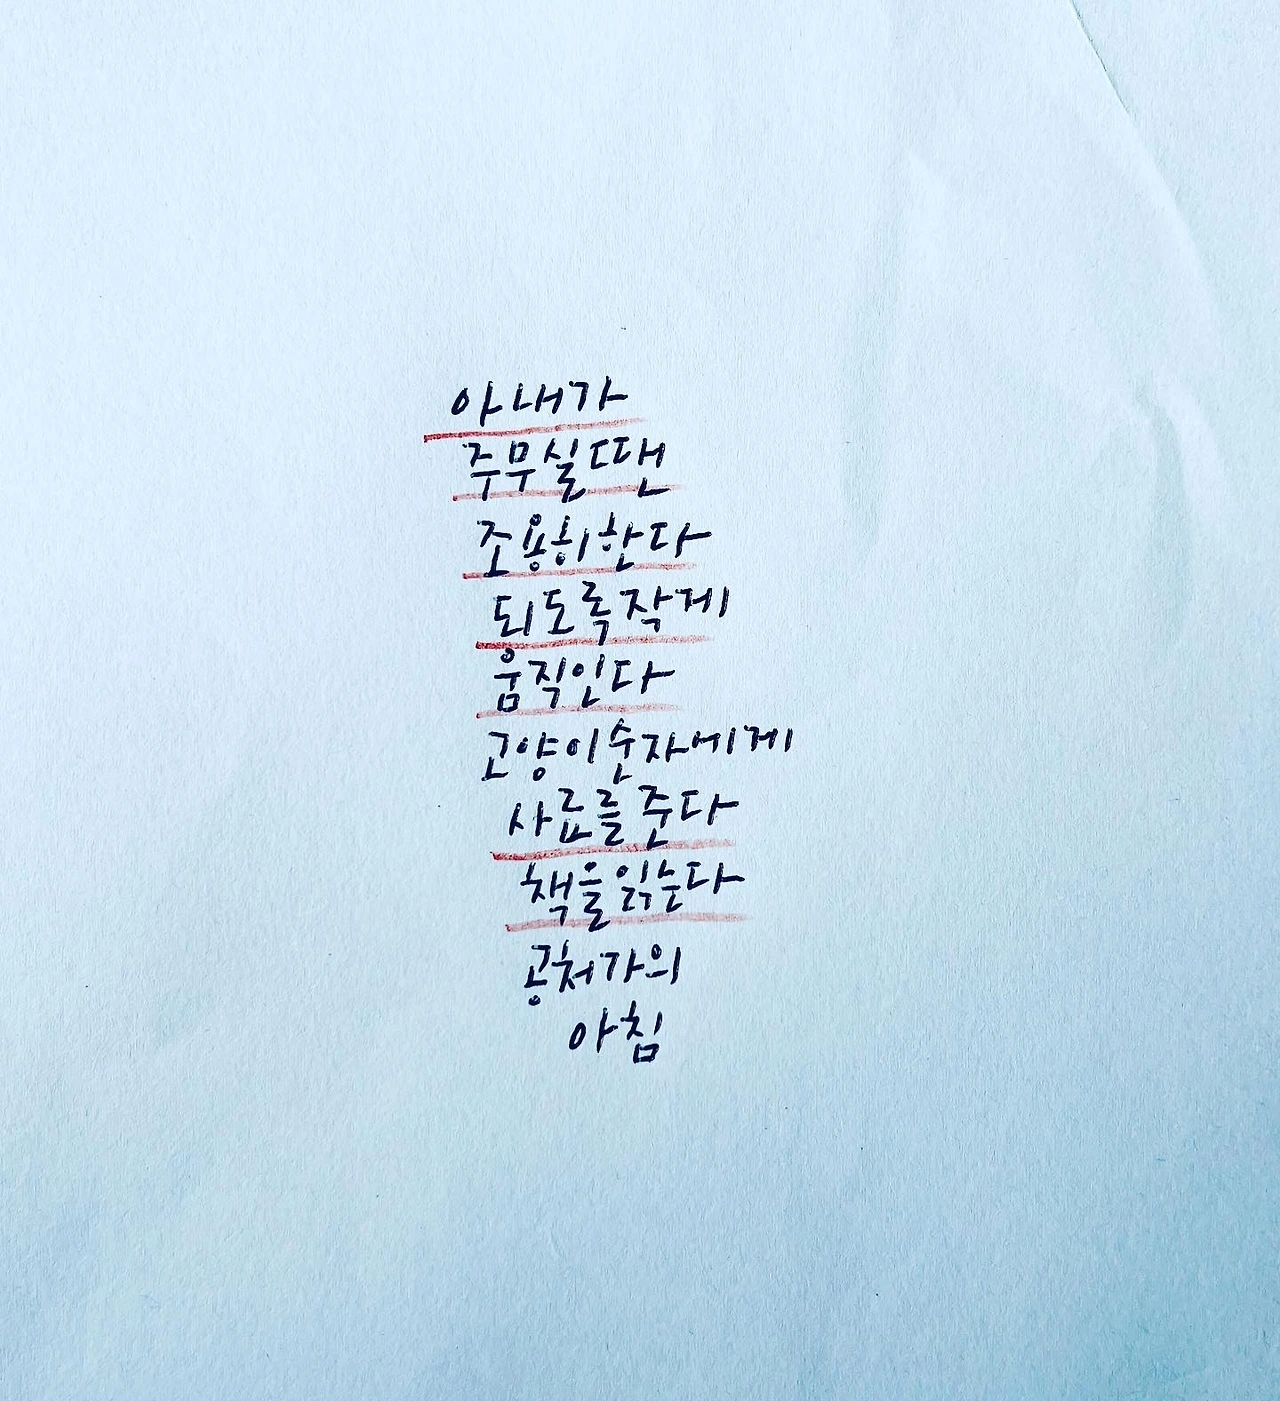 아내가
주무실땐
조용히한다
되도록작게
움직인다
고양이순자에게
사료를 준다
책을읽는다
공처가의
아침